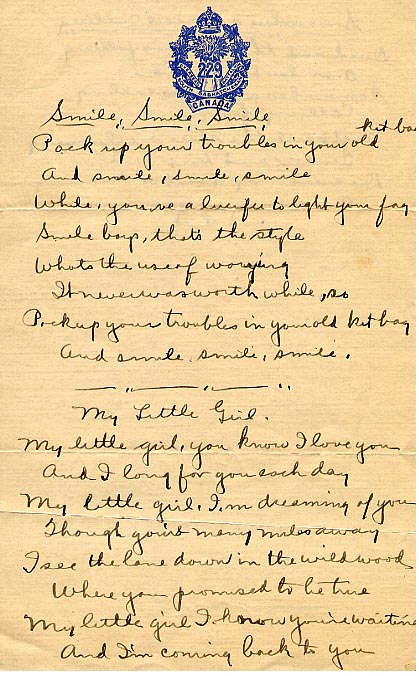 229
SOUTH SASKATCHEWAN
CANADA
Smile, Smile, Smile
Pack up your troubles in your old kit bag
And smile, smile, smile
While, you've a lucifer to light your fag
Smile boys, thats the style
Whats the use of worrying
It never was worth while, so
Pack up your troubles in your old kit bag
And smile, smile, smile.
My Little Girl.
My little girl, you know I love you
And I long for you each day
My little girl, I'm dreaming of you
Though you're many miles away
I see the lane down in the wildwood
Where you promised to be true
My little girl I know you're waiting
And I'm coming back to you